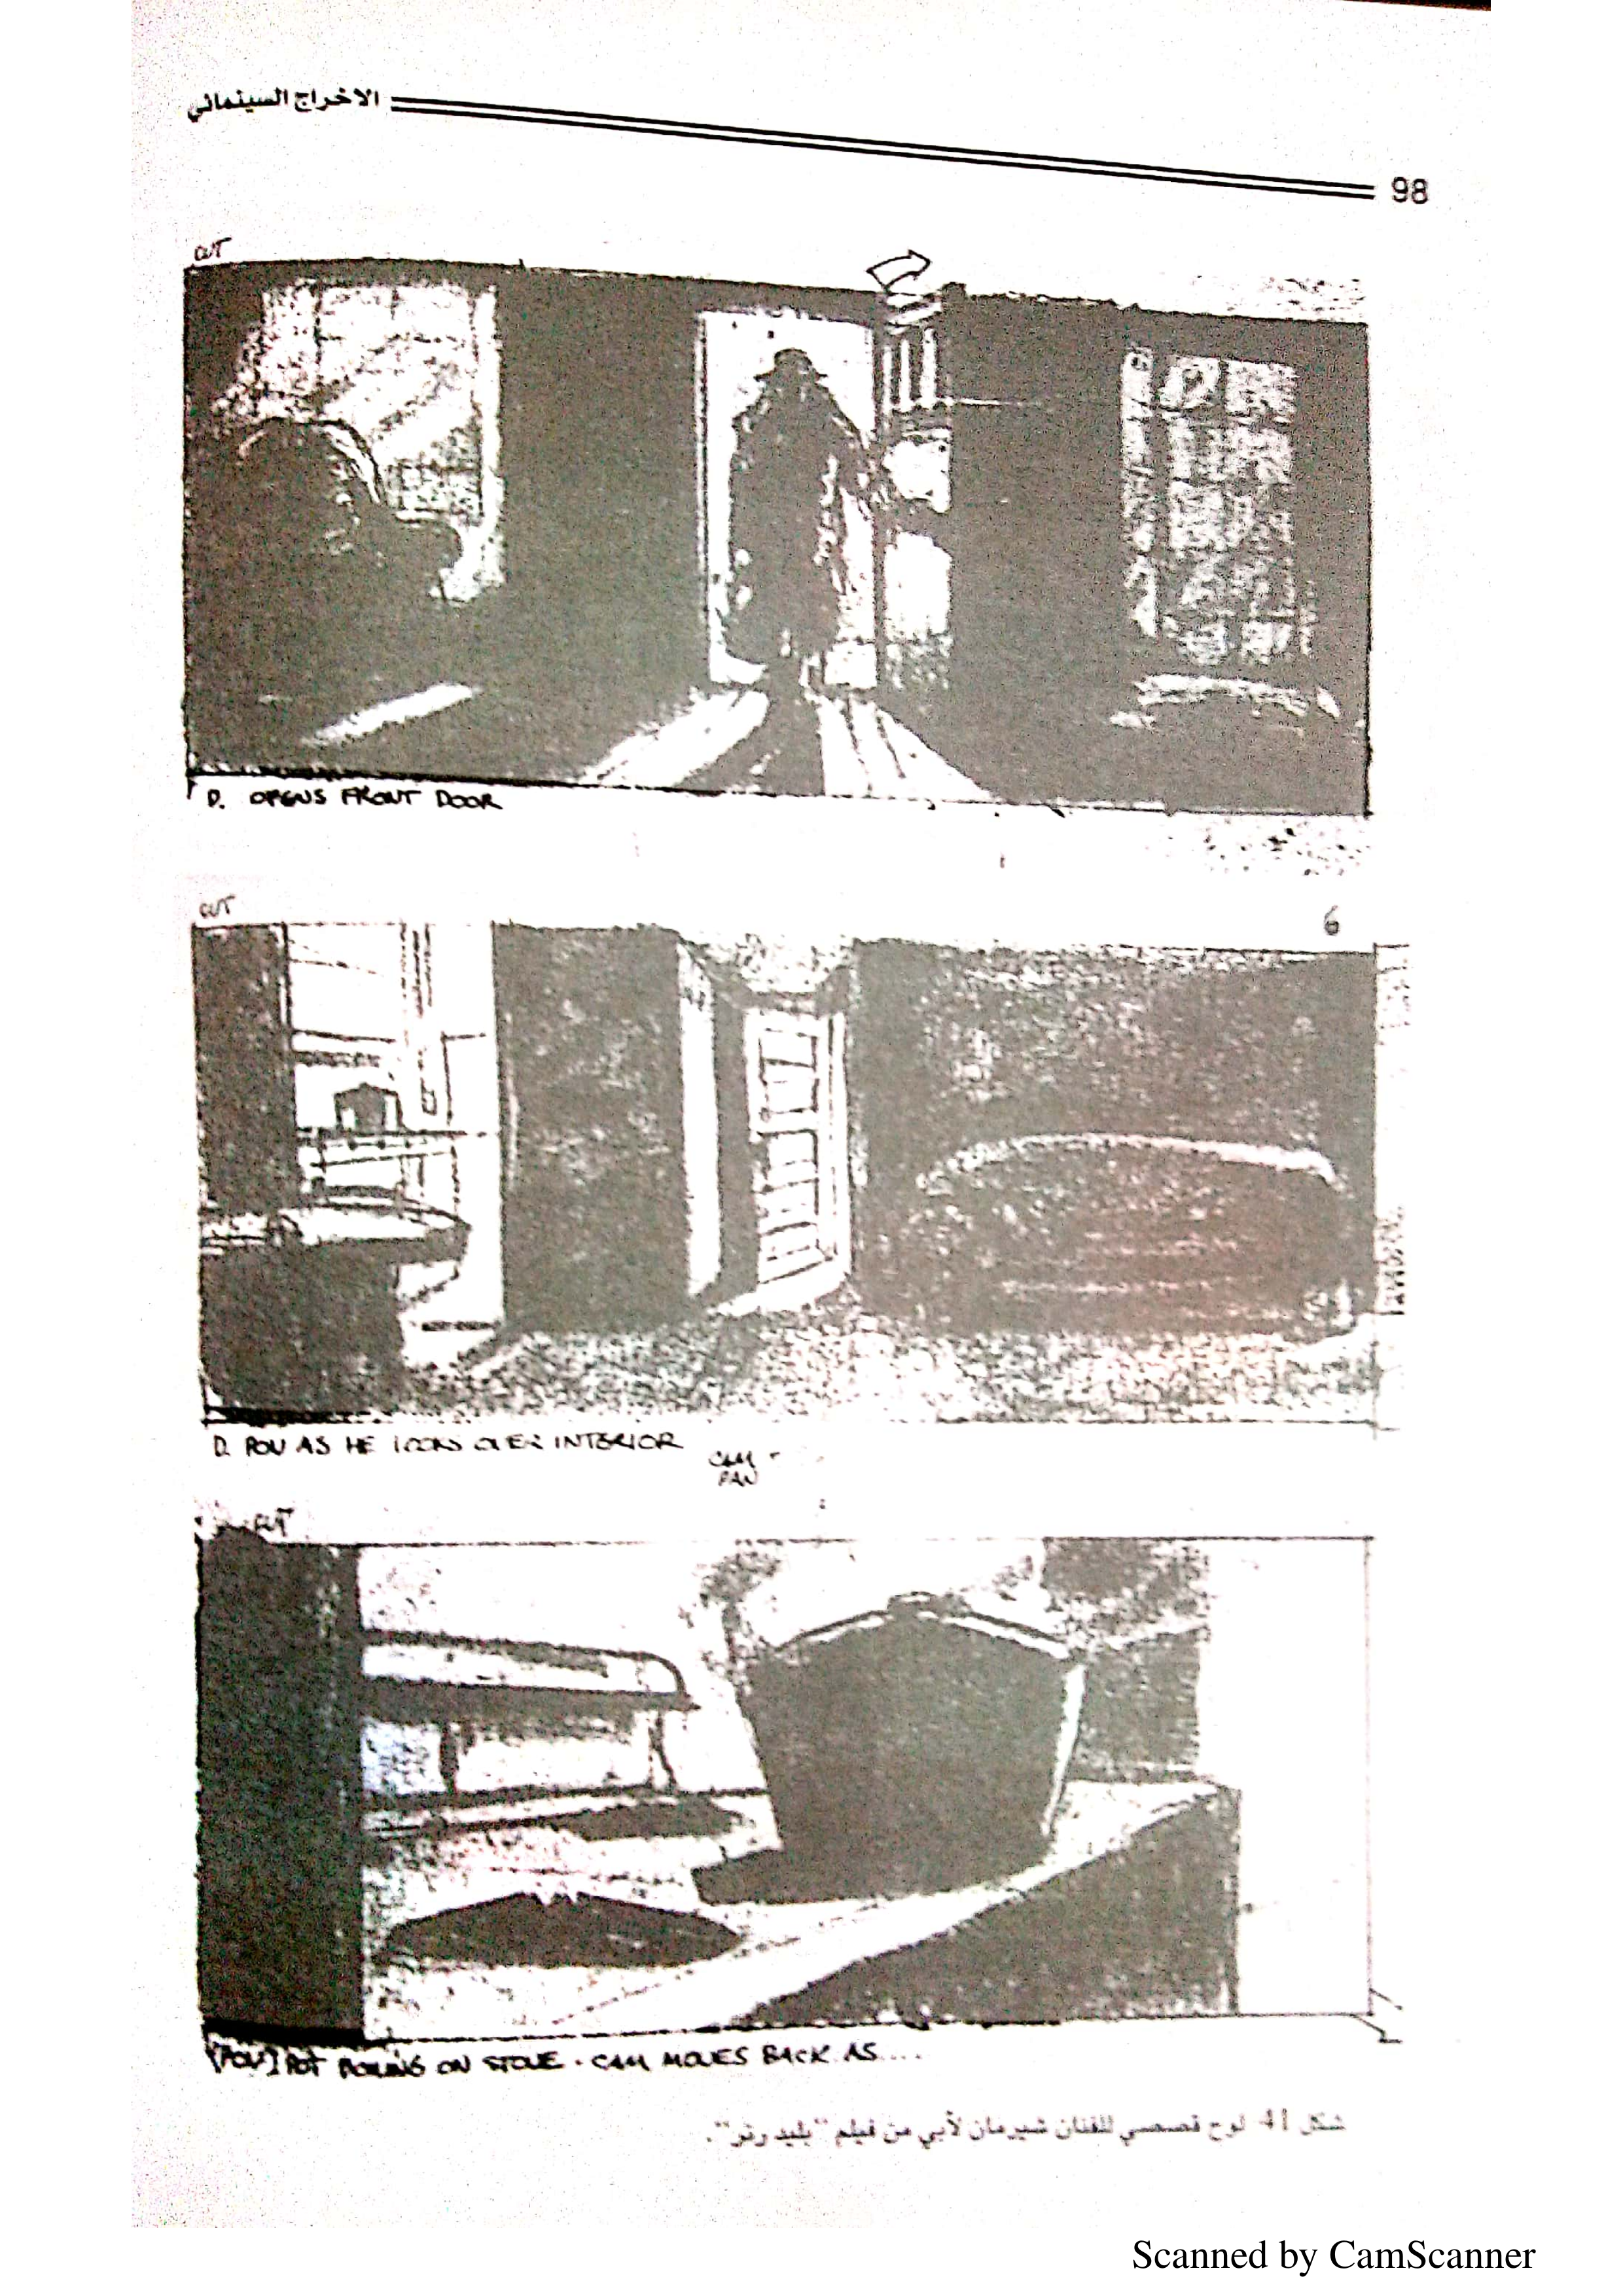 الاخراج السينمائي
98
CUT
D. OPENS FRONT DOOR
CUT
6
D. POV AS HE LOOKS OVER INTERIOR
CAM
PAN
CUT
[POV] POT BOILING ON STOVE. CAM MOVES BACK AS....
شكل 41 لوح قصصي للفنان شيرمان لأبي من فيلم "بليد رنر".
Scanned by CamScanner